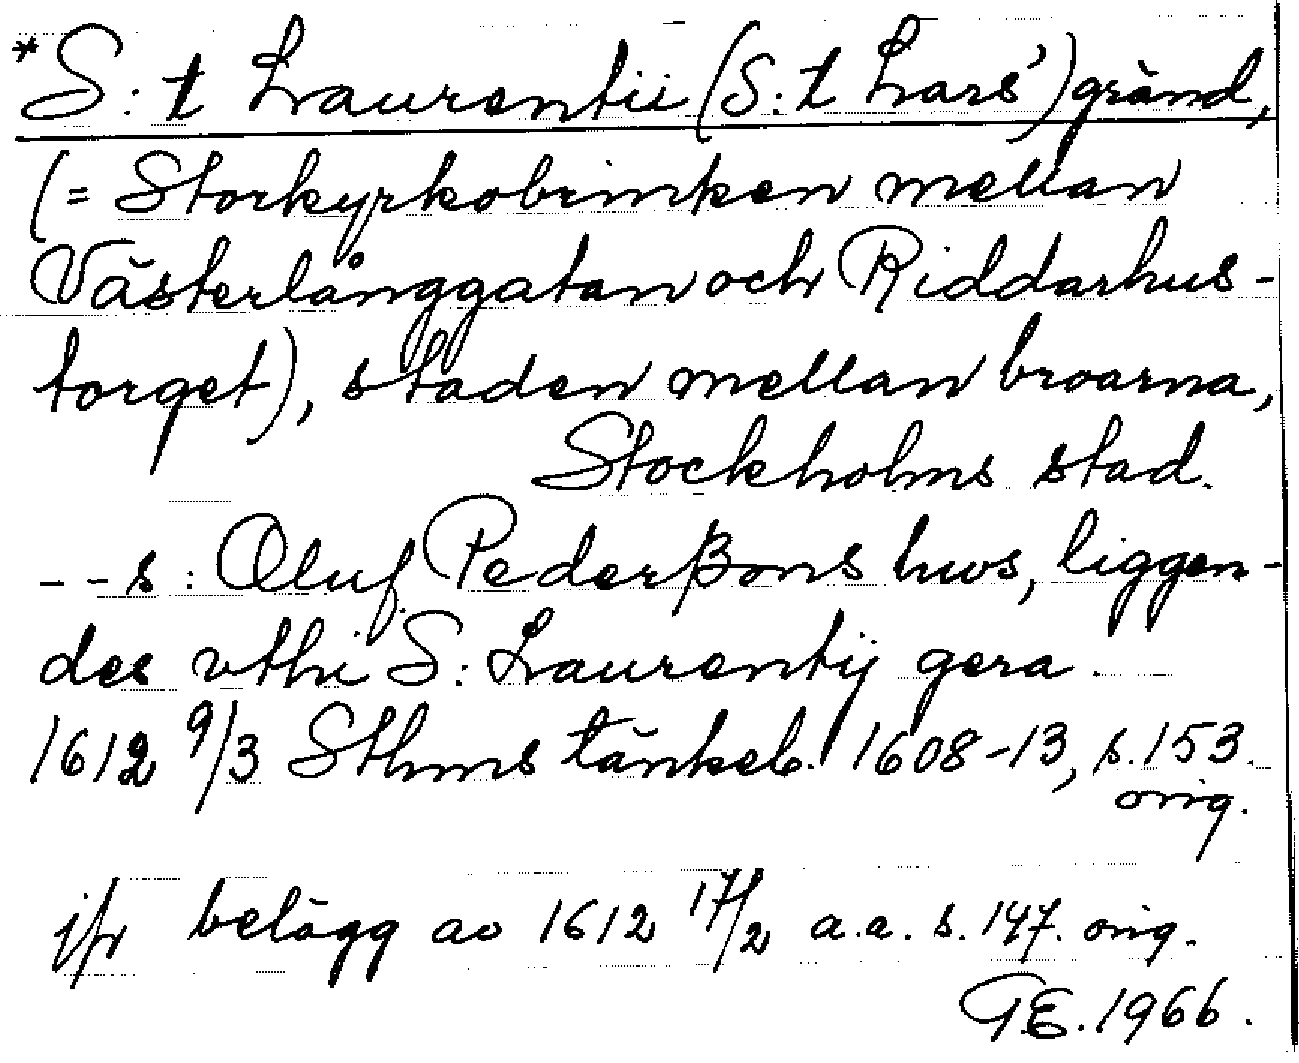 *S:t Laurentii (S:t Lars') gränd,
(= Storkyrkobrinken mellan
Västerlånggatan och Riddarhus-
torget), staden mellan broarna,
Stockholms stad.
- - s: Oluf Pederßons hws, liggen-
des vthi S: Laurentij gera.
1612 9/3 Sthms tänkeb. 1608-13, s. 153.
orig.
jfr belägg av 1612 17/2 a.a. s. 147. orig.
G.E. 1966.